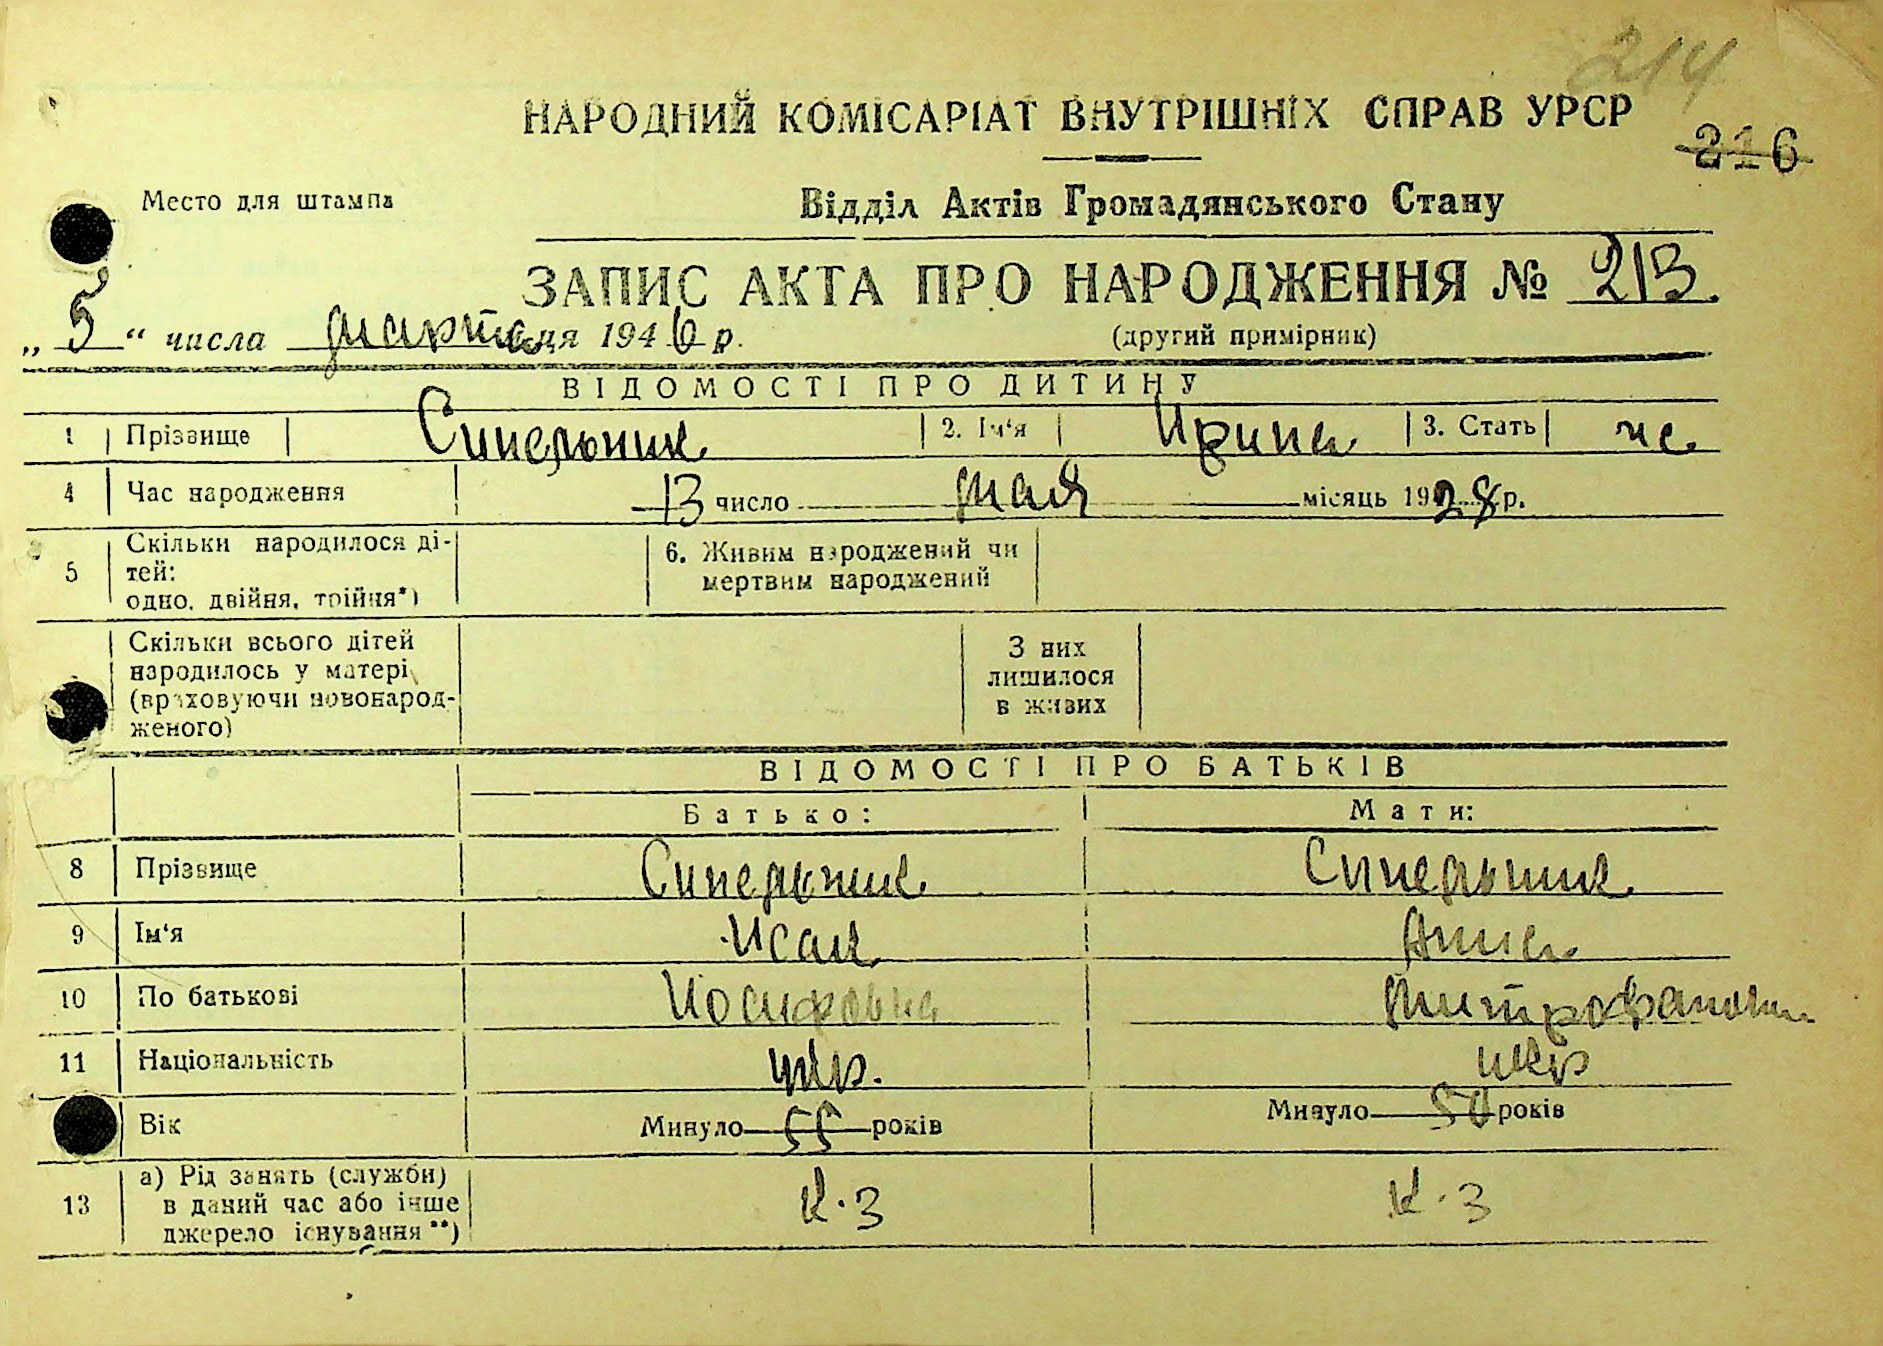 214
НАРОДНИЙ КОМІСАРІАТ ВНУТРІШНІХ СПРАВ УРСР
216
Место для штампа
Відділ Актів Громадянського Стану
ЗАПИС АКТА ПРО НАРОДЖЕННЯ № 213.
„ 5 “ числа марта ця 1946 р.
(другий примірник)
ВІДОМОСТІ ПРО ДИТИНУ
1 Прізвище Синельник 2. Ім‘я Ирина 3. Стать ж
4 Час народження 13 число мая місяць 1928 р.
5 Скільки народилося ді-
тей:
одно, двійня, трійня*)
6. Живим народжений чи
мертвим народжений
Скільки всього дітей
народилось у матері
(враховуючи новонарод-
женого)
З них
лишилося
в живих
ВІДОМОСТІ ПРО БАТЬКІВ
Батько: Мати:
8 Прізвище Синельник Синельник
9 Ім‘я Исак Анна
10 По батькові Иосифовна Митрофановна
11 Національність укр. укр
Вік Минуло 55 років Минуло 50 років
13 а) Рід занять (служби)
в даний час або інше
джерело існування**)
К·З К·З